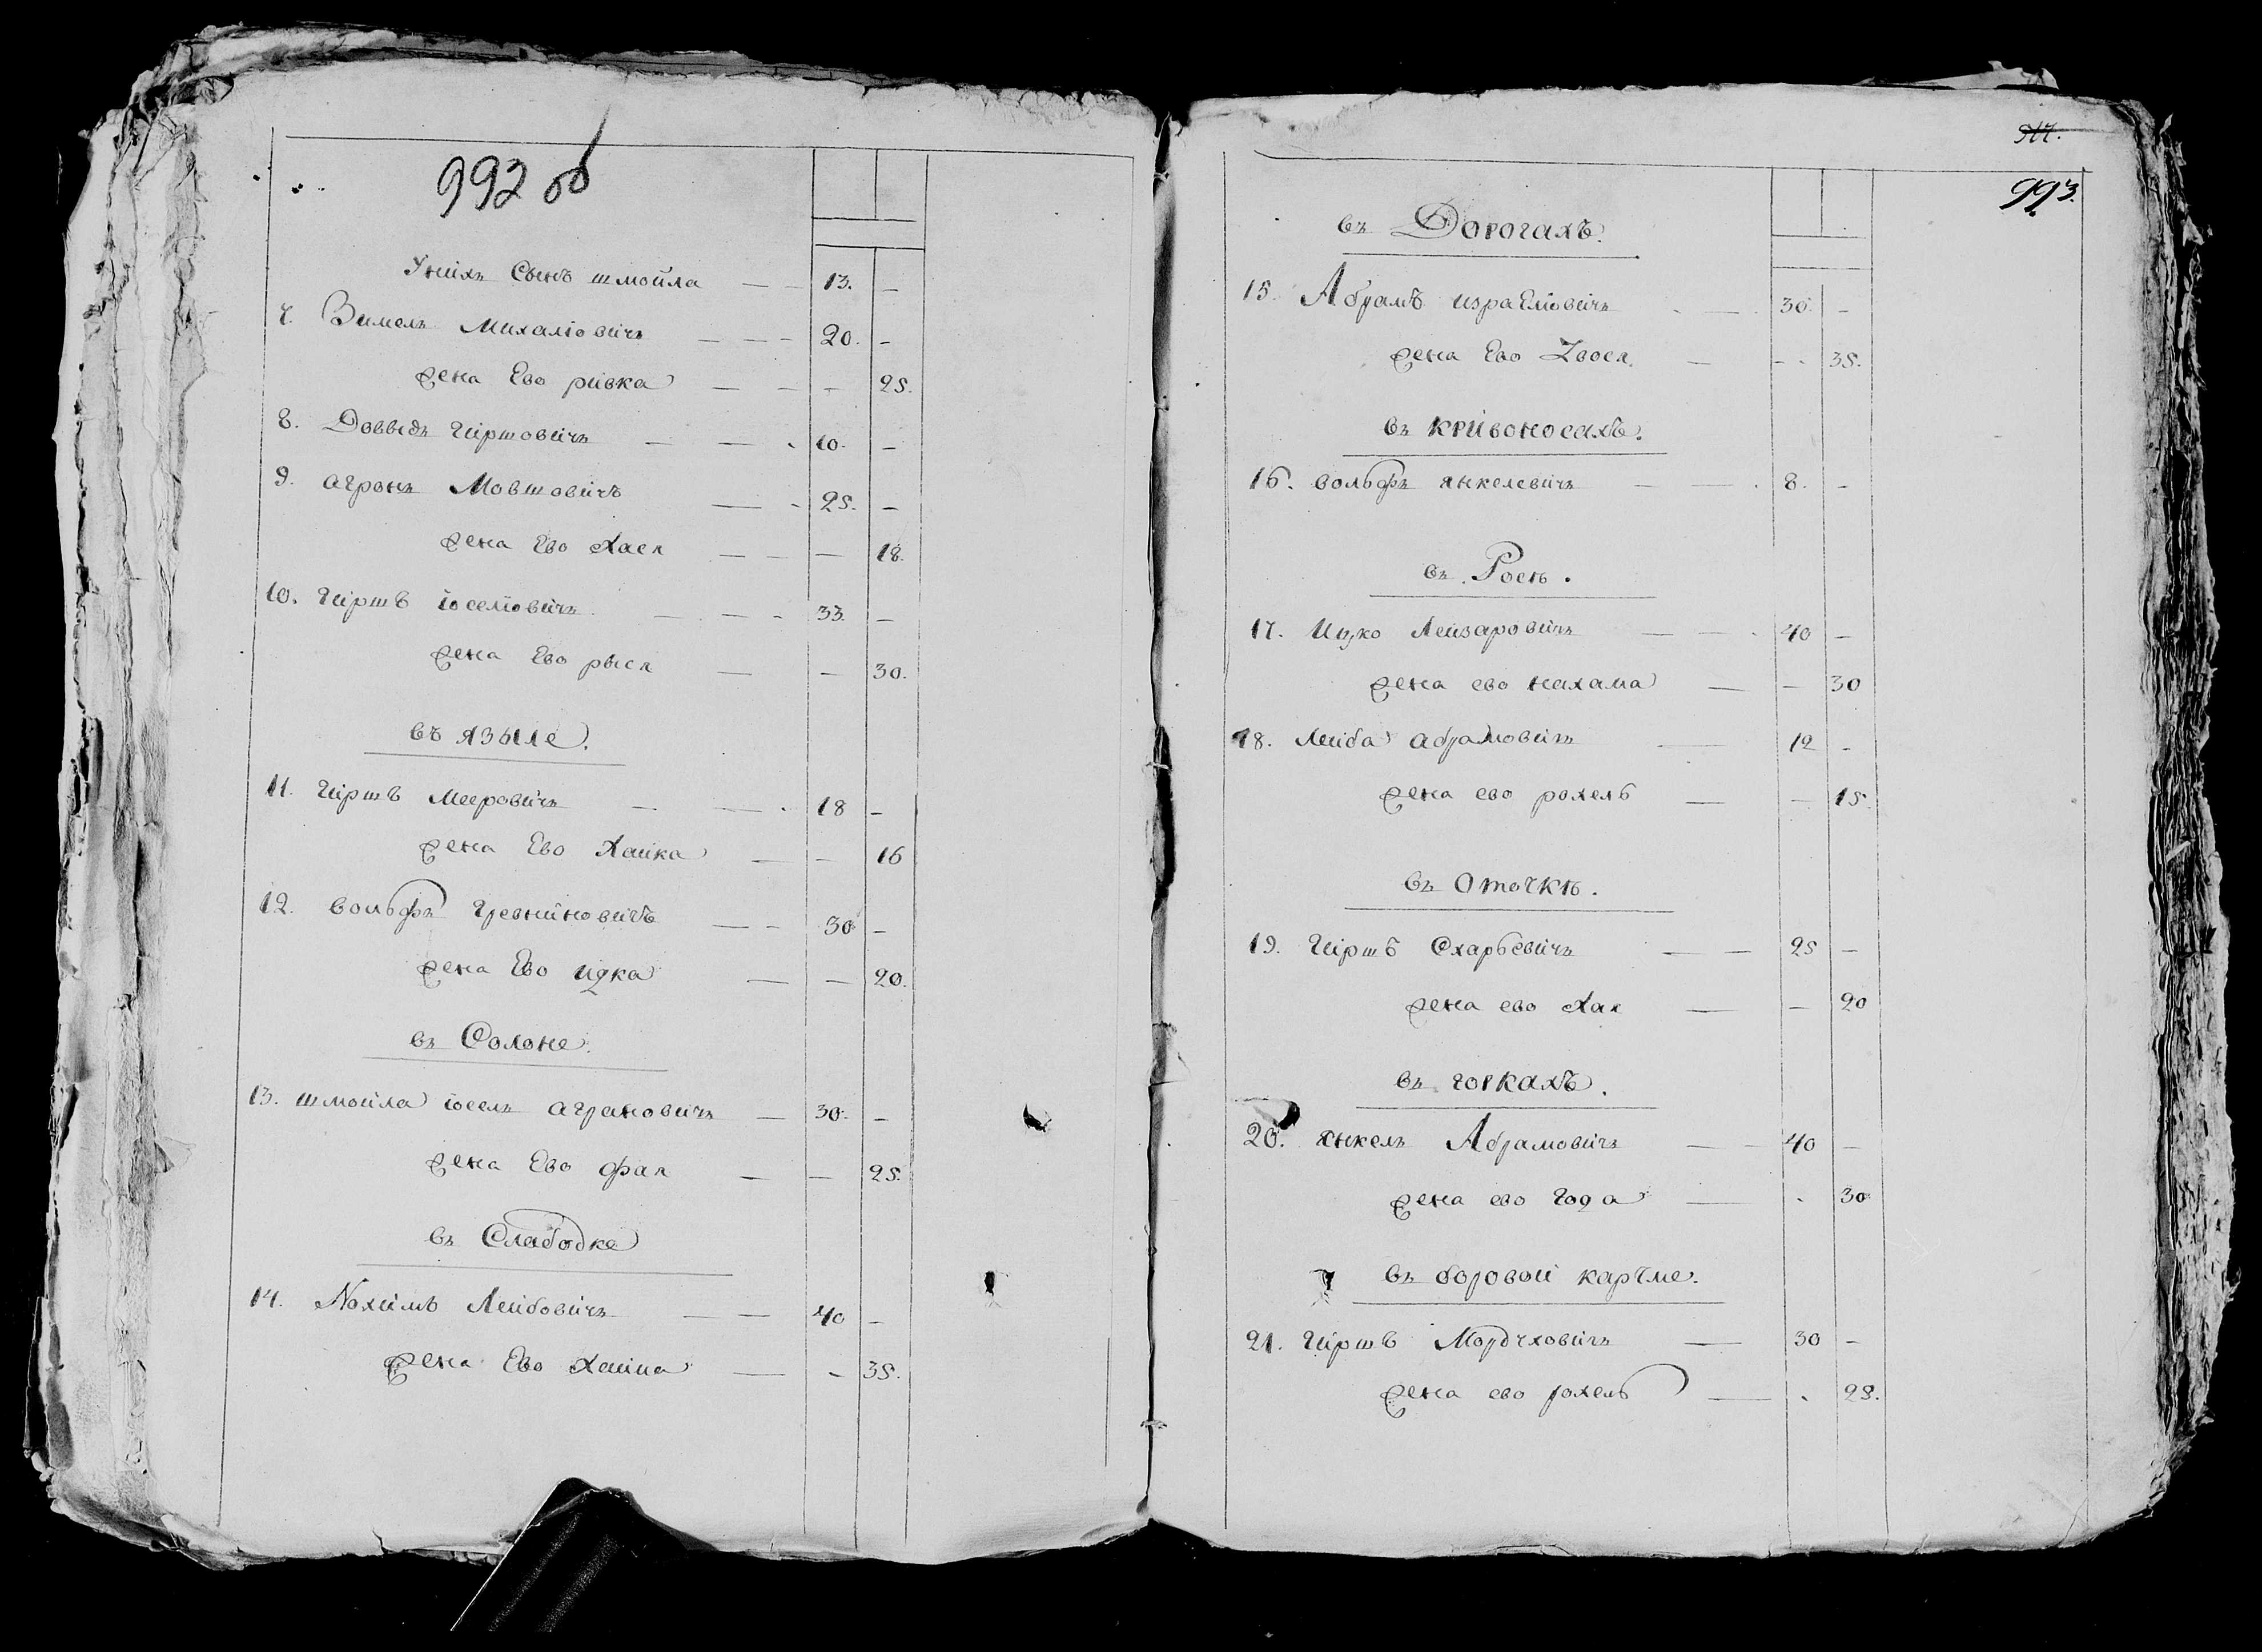 992 об
Унихъ Сынъ шмойла — — 13. —
7. Зимель Михаліовичъ — — — 20. —
Жена Ево ривка — — — 25.
8. Доввидъ Гиршовичъ — — 10. —
9. агронъ Мовшовичъ — — 25. —
жена Ево Хася — — — 18.
10. Гиршъ іоселіовичъ — — — 33. —
Жена Ево рыся — — 30.
въ языле.
11. Гиршъ Мееровичъ — — 18 —
жена Ево Хайка — — 16
12. вольфъ — — 30 —
жена Ево идка — — 20.
въ Солоне.
13. шмойла іосель аграновичъ — 30. —
жена Ево фая — — 25.
въ Слабодке
14. Нохимъ Лейбовичъ — — 40 —
Жена Ево Хаина — — 35.
911.
993.
въ Дорогахъ.
15. Абрамъ израеліовичъ — 30. —
жена Ево Двося. — — 35.
въ кривоносахъ.
16. вольфъ янкелевичъ — — 8. —
въ Росѣ.
17. Ицко Лейзаровичъ — — 40 —
жена ево нахама — — 30
18. Лейба абрамовичъ — 12 —
жена ево рохель — — 15.
въ Оточкѣ.
19. Гиршъ Схарьевичъ — — 25 —
жена ево Хая — — 20
въ горкахъ.
20. янкель Абрамовичъ — — 40 —
жена ево Года — 30
въ боровой карчме.
21. Гиршъ Мордуховичъ — 30 —
жена ево рохель — 28.